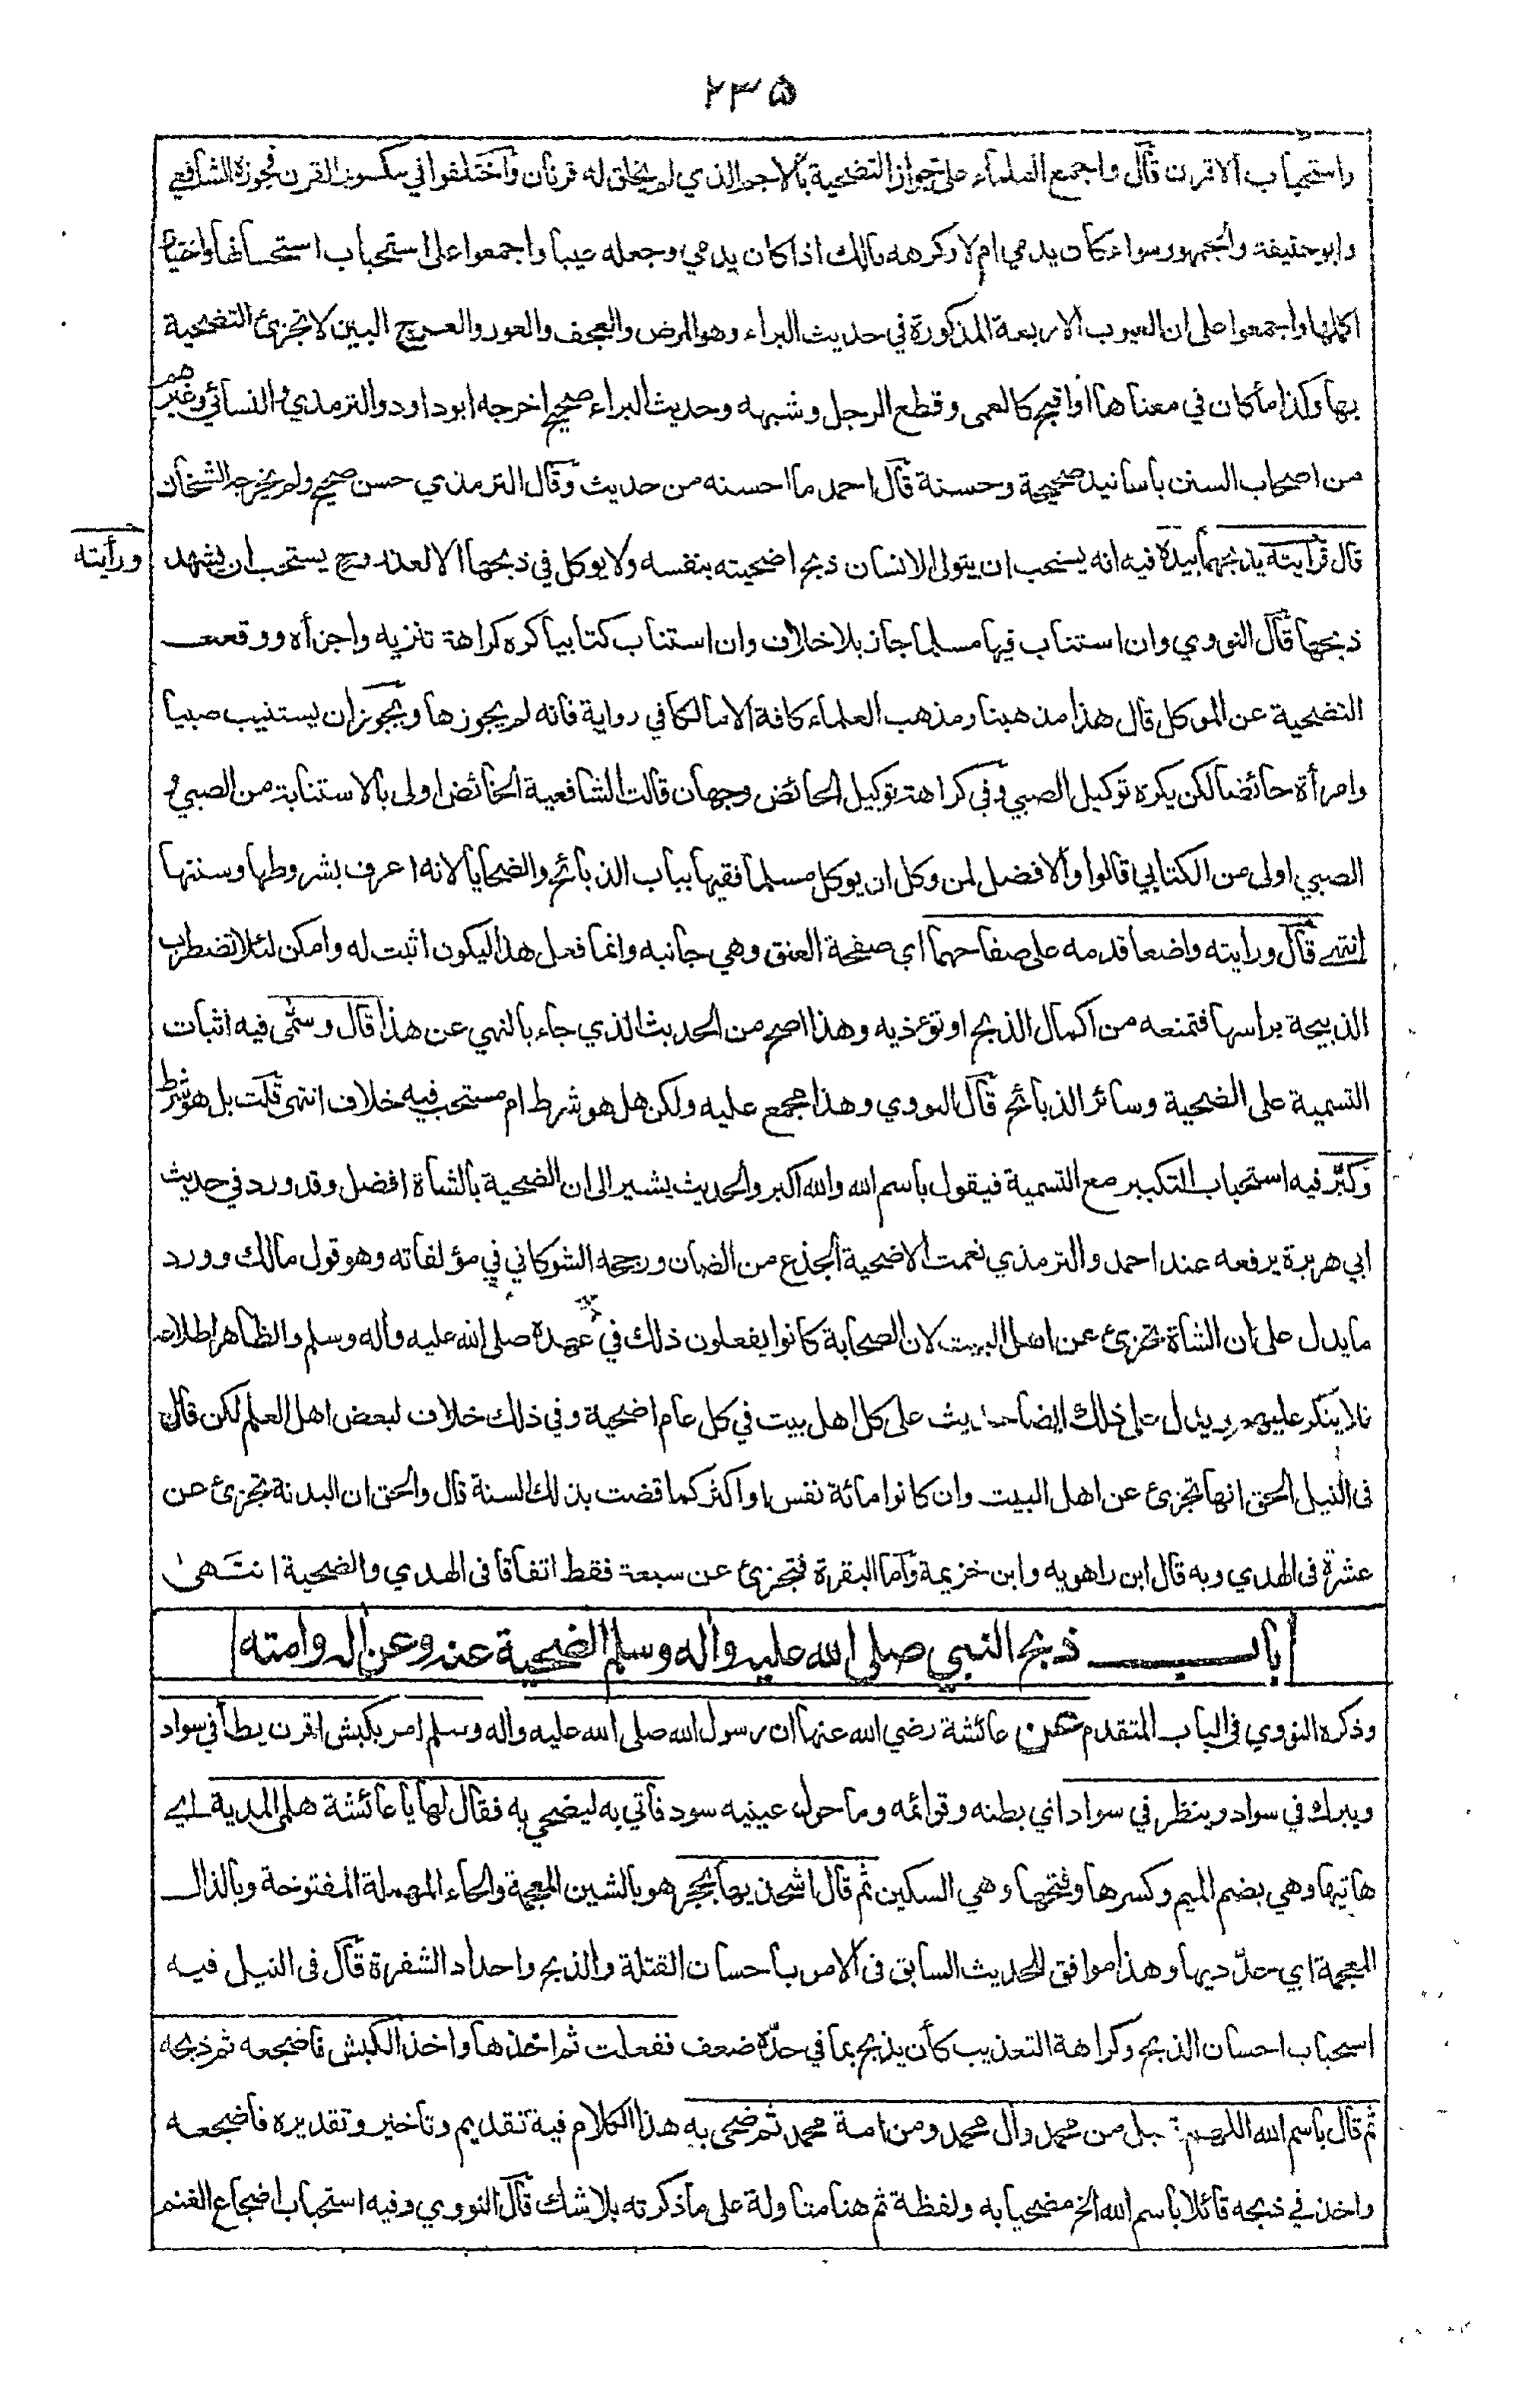 ٢٣٥
واستحباب الاقرن قال واجمع العلماء على جواز التضحية بالاجم الذي لم يخلق له قرنان واختلفوا في مكسور القرن فجوزه الشافعي
وابو حنيفة والجمهور سواء كان يدمي ام لا وكرهه مالك اذا كان يدمي وجعله عيبا واجمعوا على استحباب استحسانها واختيار
اكملها واجمعوا على ان العيوب الاربعة المذكورة في حديث البراء وهو المرض والعجف والعور والعرج البين لا تجزئ التضحية
بها وكذا ما كان في معناها او اقبح كالعمى وقطع الرجل وشبهه وحديث البراء صحيح اخرجه ابو داود والترمذي والنسائي وغيرهم
من اصحاب السنن بأسانيد صحيحة وحسنة قال احمد ما احسنه من حديث وقال الترمذي حسن صحيح ولم يخرجه الشيخان
قال فرأيته يذبحهما بيده فيه انه يستحب ان يتولى الانسان ذبح اضحيته بنفسه ولا يوكل في ذبحها الا لعذر وح يستحب ان يشهد
ورأيته
ذبحها قال النووي وان استناب فيها مسلما جاز بلا خلاف وان استناب كتابيا كره كراهة تنزيه واجزأه ووقعت
التضحية عن الموكل قال هذا مذهبنا ومذهب العلماء كافة الا مالكا في رواية فانه لم يجوزها ويجوز ان يستنيب صبيا
وامرأة حائضا لكن يكره توكيل الصبي وفي كراهة توكيل الحائض وجهان قالت الشافعية الحائض اولى بالاستنابة من الصبي و
الصبي اولى من الكتابي قالوا والافضل لمن وكل ان يوكل مسلما فقيها بباب الذبائح والضحايا لانه اعرف بشروطها وسنتها
انتهى قال ورايته واضعا قدمه على صفاحهما اي صفحة العنق وهي جانبه وانما فعل هذا ليكون اثبت له وامكن لئلا تضطرب
الذبيحة براسها فتمنعه من اكمال الذبح او تؤذيه وهذا اصح من الحديث الذي جاء بالنهي عن هذا قال وسمى فيه اثبات
التسمية على الضحية وسائر الذبائح قال النووي وهذا مجمع عليه ولكن هل هو شرط ام مستحب فيه خلاف انتهى قلت بل هو شرط
وكبر فيه استحباب التكبير مع التسمية فيقول باسم الله والله اكبر والحديث يشير الى ان الضحية بالشاة افضل وقد ورد في حديث
ابي هريرة يرفعه عند احمد والترمذي نعمت الاضحية الجذع من الضان ورجحه الشوكاني في مؤلفاته وهو قول مالك وورد
ما يدل على ان الشاة تجزئ عن اهل البيت لان الصحابة كانوا يفعلون ذلك في عهده صلى الله عليه وآله وسلم والظاهر اطلاعه
فلا ينكر عليهم ويدل على ذلك ايضا حديث على كل اهل بيت في كل عام اضحية وفي ذلك خلاف لبعض اهل العلم لكن قال
فى النيل الحق انها تجزئ عن اهل البيت وان كانوا مائة نفس او اكثر كما قضت بذلك السنة قال والحق ان البدنة تجزئ عن
عشرة فى الهدي وبه قال ابن راهويه وابن خزيمة وأما البقرة فتجزئ عن سبعة فقط اتفاقا فى الهدي والضحية انتهى
باب ذبح النبي صلى الله عليه وآله وسلم الضحية عنه وعن آله وامته
وذكره النووي فى الباب المتقدم عن عائشة رضي الله عنها ان رسول الله صلى الله عليه وآله وسلم امر بكبش اقرن يطأ في سواد
ويبرك في سواد وينظر في سواد اي بطنه وقوائمه وما حول عينيه سود فأتي به ليضحي به فقال لها يا عائشة هلمي المدية اي
هاتيها وهي بضم الميم وكسرها وفتحها وهي السكين ثم قال اشحذيها بحجر هو بالشين المعجمة والحاء المهملة المفتوحة وبالذال
المعجمة اي حدّديها وهذا موافق للحديث السابق فى الامر بأحسان القتلة والذبح واحداد الشفرة قال فى النيل فيه
استحباب احسان الذبح وكراهة التعذيب كأن يذبح بما في حدّه ضعف ففعلت ثم اخذها واخذ الكبش فاضجعه ثم ذبحه
ثم قال باسم الله اللهم تقبل من محمد وآل محمد ومن امة محمد ثم ضحى به هذا الكلام فيه تقديم وتأخير وتقديره فأضجعه
واخذ في ذبحه قائلا باسم الله الخ مضحيا به ولفظة ثم هنا متاولة على ما ذكرته بلا شك قال النووي وفيه استحباب اضجاع الغنم